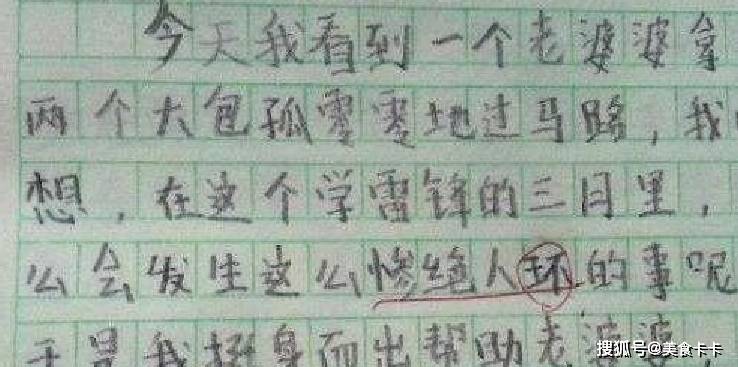 今天我看到一个老婆婆拿
两个大包孤零零地过马路，我
想，在这个学雷锋的三月里，
么会发生这么惨绝人环的事呢
于是我挺身而出帮助老婆婆，
搜狐号@美食卡卡